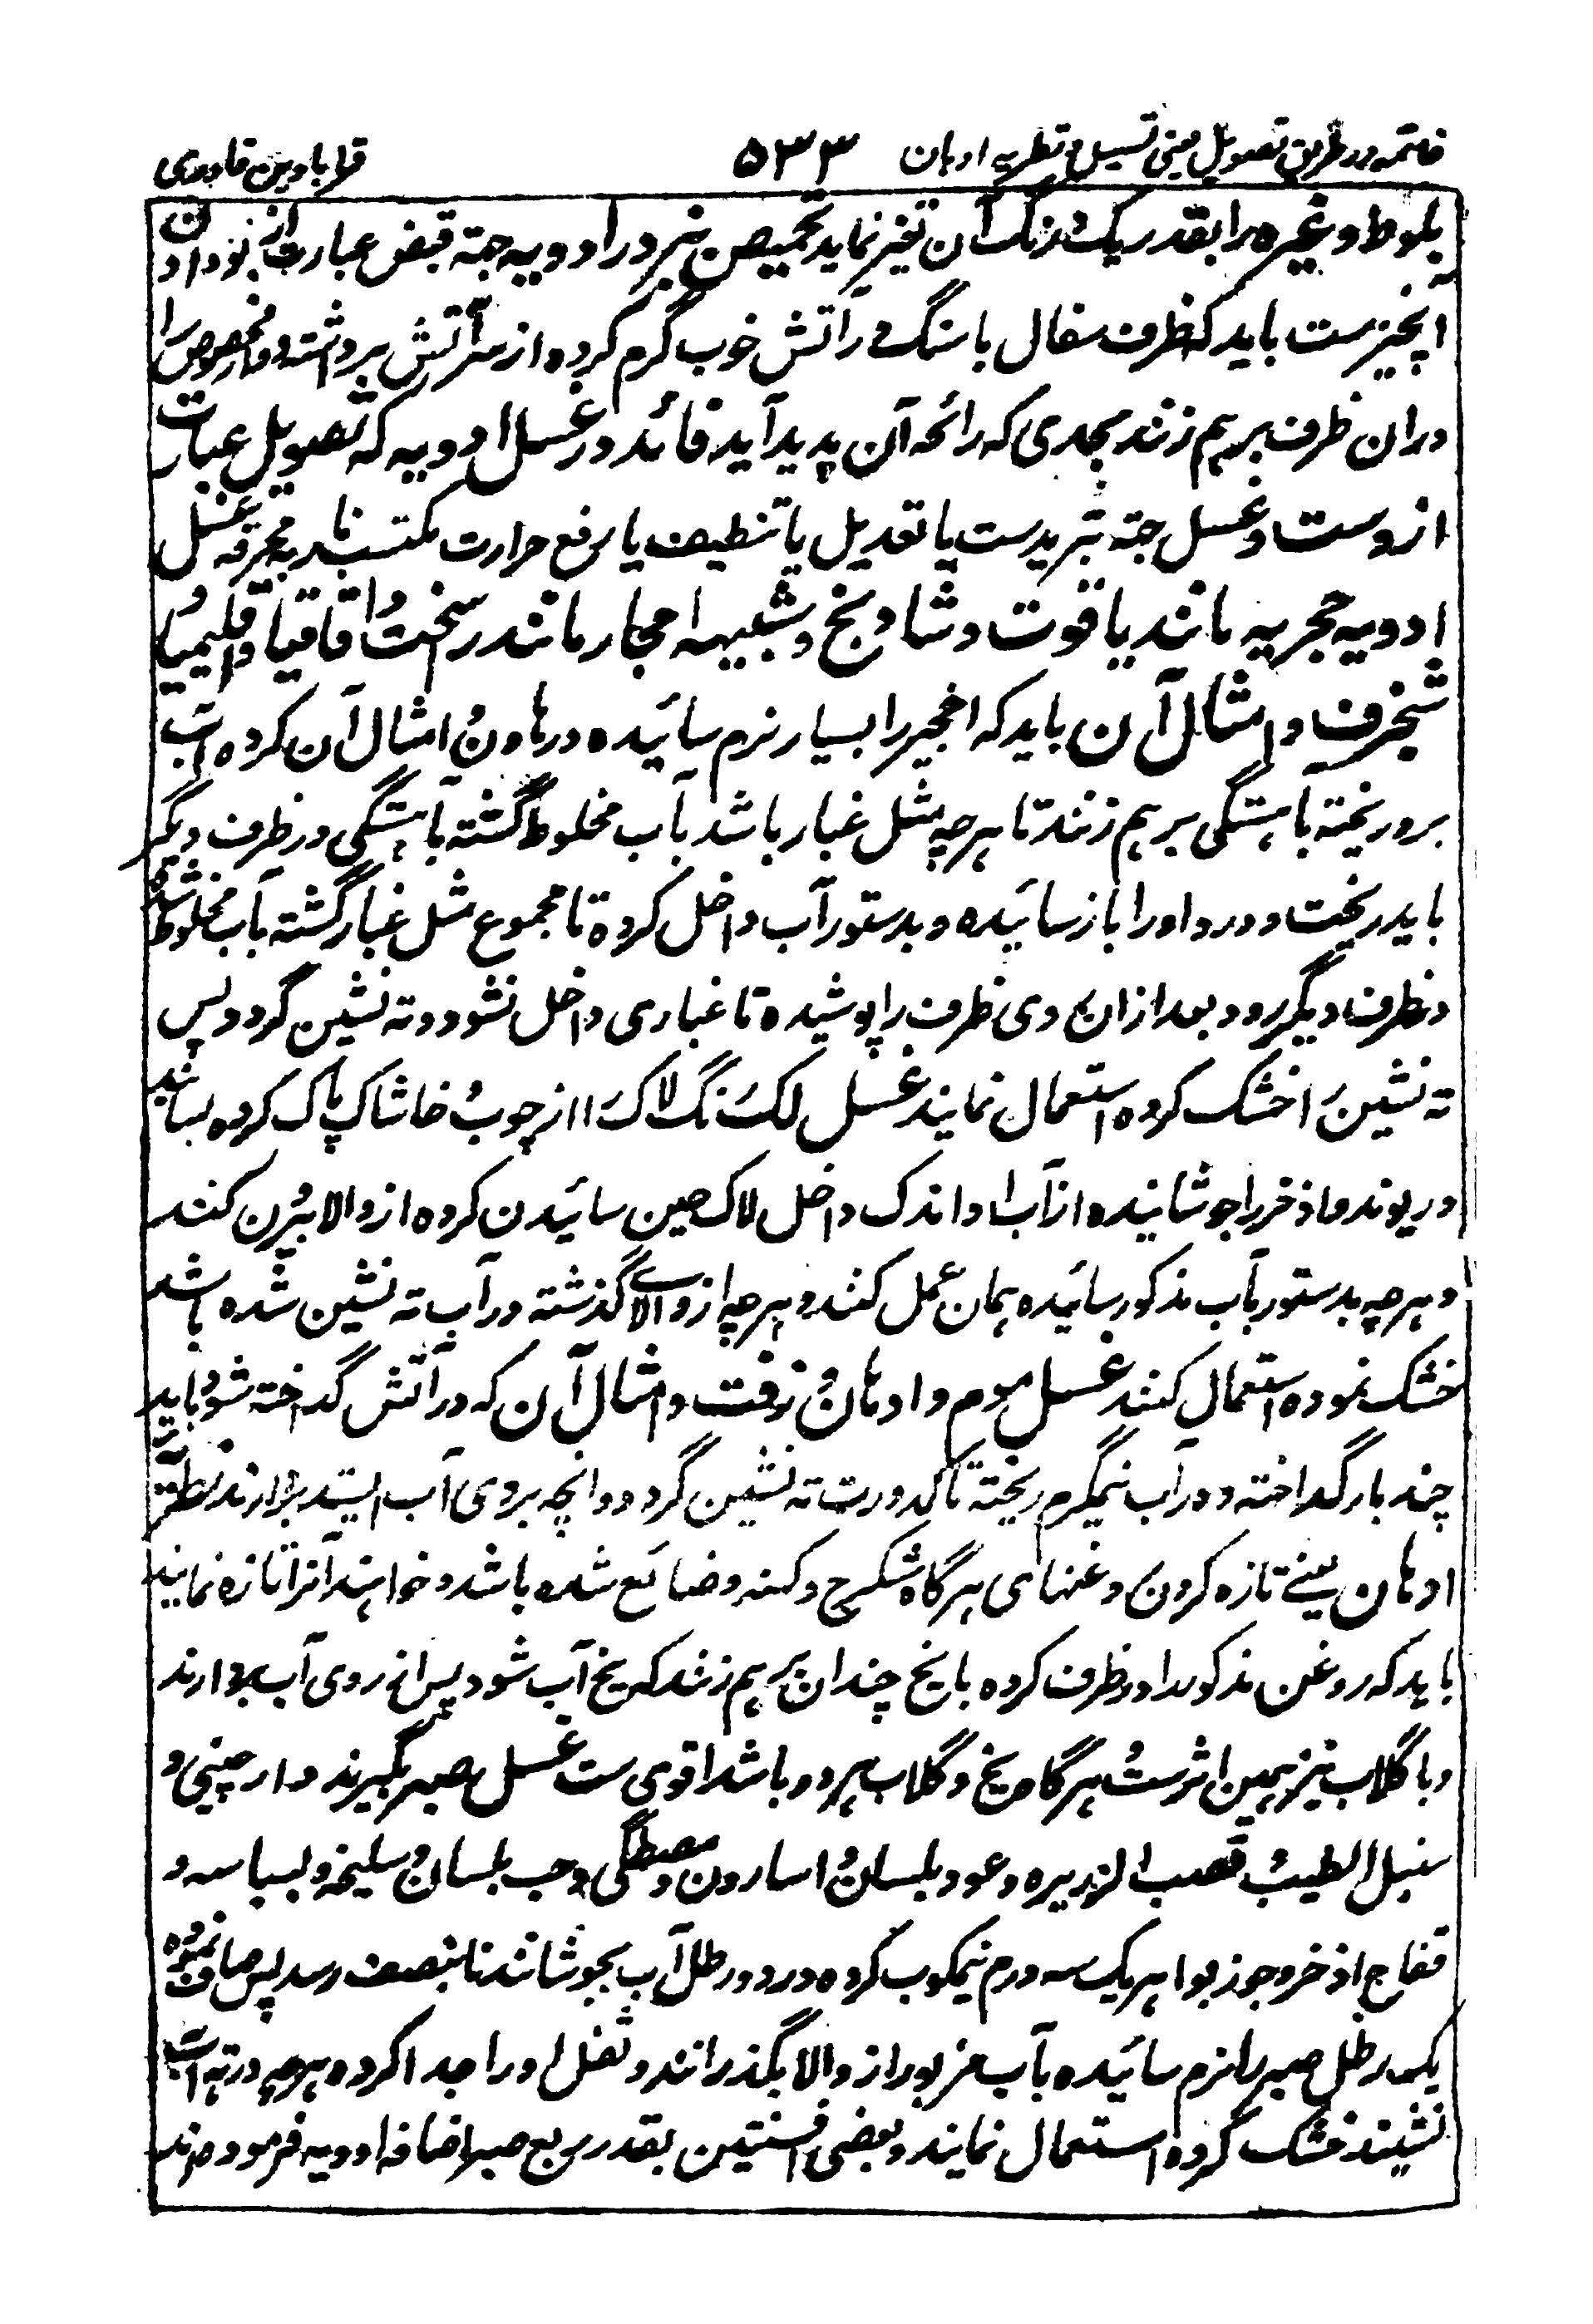 خاتمه در طریق تصویل یعنی غسیل و تطریه ادهان ۵۳۳ قرابادین قادری
بلوط و غیره را بقدریکه رنگ آن تغیر نماید تحمیص نیز در ادویه جهة قبض عبارت از بو دادن
انچیزست باید که ظرف سفال یا سنگ در آتش خوب گرم کرده از سر آتش برداشته دوا مخصوص را
دران ظرف برهم زنند بحدی که رائحه آن پدید آید فائده در غسل ادویه که تصویل عبارت
ازوست و غسل جهة تبریدست یا تعدیل یا تنظیف یا رفع حرارت مکتسب ناریه محرقه غسل
ادویه حجریه مانند یاقوت و شادنج و شبیهه احجار مانند رسخت و اقاقیا و اقلیمیا
شنجرف و امثال آن باید که اخجیر را بسیار نرم سائیده در هاون و امثال آن کرده آب
برو ریخته بآهستگی برهم زنند تا هرچه مثل غبار باشد بآب مخلوط گشته بآهستگی در ظرف دیگر
باید ریخت و درد او را باز سائیده و بدستور آب داخل کرده تا مجموع مثل غبار گشته بآب مخلوط شده
در ظرف دیگر رود و بعد ازان روی ظرف را پوشیده تا غباری داخل نشود و ته نشین گردد پس
ته نشین را خشک کرده استعمال نمایند غسل لک رنگ لاک را از چوب و خاشاک پاک کرده بسایند
و ریوند و اذخر را جوشانیده از آب او اندک داخل لاک حین سائیدن کرده از والا بیرون کنند
و هرچه بدستور بآب مذکور سائیده همان عمل کنند و هرچه از والای گذشته در آب ته نشین شده باشد
خشک نموده استعمال کنند غسل موم و ادهان و زفت و امثال آن که در آتش گداخته شود باید
چند بار گداخته و در آب نیمگرم ریخته تا کدورت ته نشین گردد و انچه بروی آب ایستد بردارند تطریه
ادهان یعنی تازه کردن روغنهای هرگاه شکرج و کهنه و ضائع شده باشد و خواهند آنرا تازه نمایند
باید که روغن مذکور را در ظرف کرده با یخ چندان برهم زنند که یخ آب شود پس از روی آب بردارند
و با گلاب نیز همین اثرست و هرگاه یخ و گلاب هر دو باشد اقوی ست غسل صبر بگیرند دارچینی و
سنبل الطیب و قصب الذریره و عود بلسان و اسارون و مصطگی و حب بلسان و سلیخه و بسباسه و
فقاح اذخر و جوز بوا هر یک سه درم نیمکوب کرده در دو رطل آب بجوشانند تا بنصف رسد پس صاف نموده
یک رطل صبر را نرم سائیده بآب مزبور از والا بگذرانند و ثفل او را جدا کرده هرچه در ته آب
نشیند خشک کرده استعمال نمایند و بعضی افسنتین بقدر ربع صبر اضافه ادویه فرموده اند